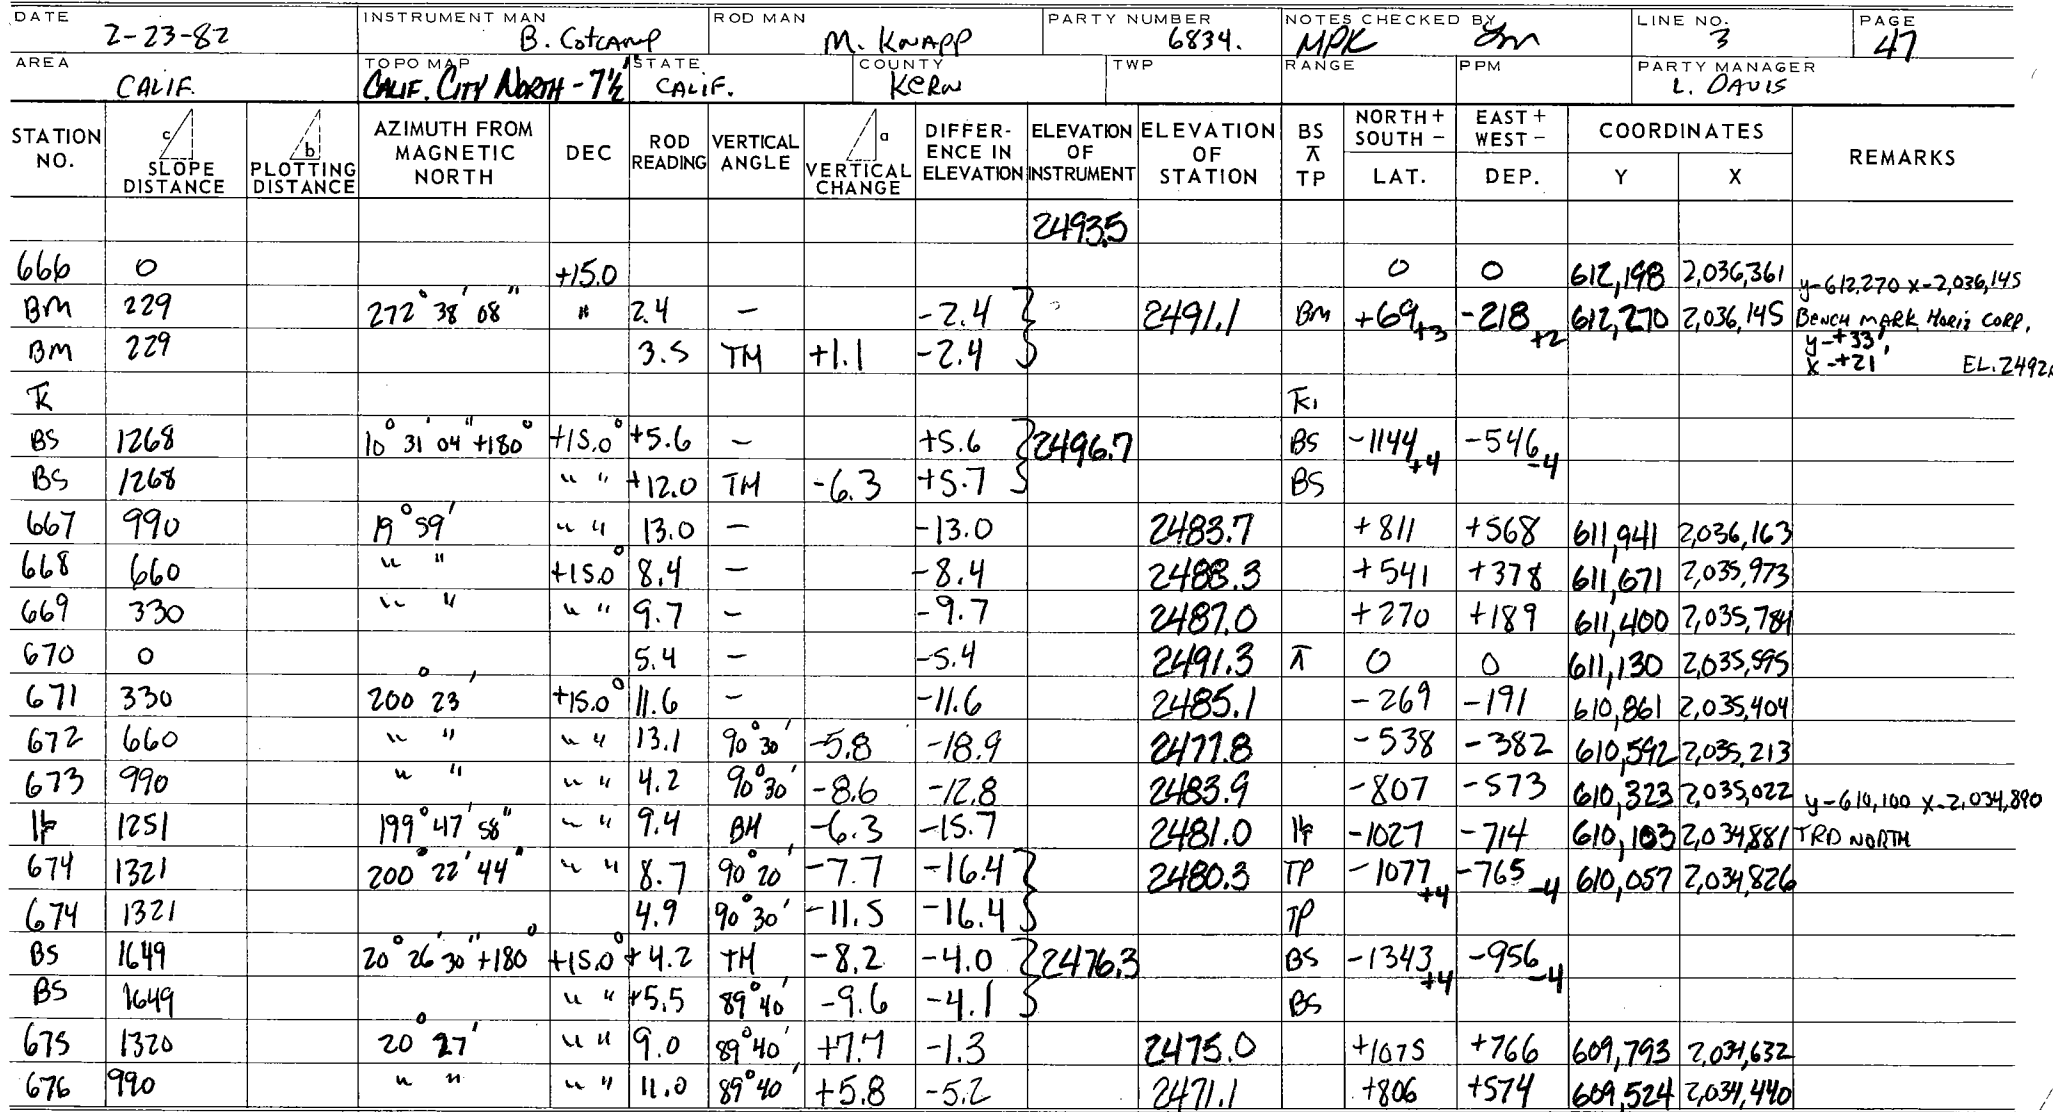 DATE INSTRUMENT MAN ROD MAN PARTY NUMBER NOTES CHECKED BY LINE NO. PAGE
2-23-82 B. Cotcamp M. KNAPP 6834. MPK 3 47
AREA TOPO MAP STATE COUNTY TWP RANGE PPM PARTY MANAGER
CALIF. CALIF. CITY NORTH - 7½' CALIF. KERN L. DAVIS
STATION NO. c SLOPE DISTANCE b PLOTTING DISTANCE AZIMUTH FROM MAGNETIC NORTH DEC ROD READING VERTICAL ANGLE a VERTICAL CHANGE DIFFERENCE IN ELEVATION ELEVATION OF INSTRUMENT ELEVATION OF STATION BS ⊼ TP NORTH + SOUTH - LAT. EAST + WEST - DEP. COORDINATES Y X REMARKS
2493.5
666 0 +15.0 0 0 612,198 2,036,361 y-612,270 x-2,036,145
BM 229 272° 38' 08" " 2.4 - -2.4 2491.1 BM +69 +3 -218 +2 612,270 2,036,145 BENCH MARK Horiz CORR.
BM 229 3.5 TM +1.1 -2.4 y-+33' x-+21' EL. 2492
⊼ ⊼
BS 1268 10° 31' 04" +180° +15.0° +5.6 - +5.6 2496.7 BS -1144 +4 -546 -4
BS 1268 " " +12.0 TM -6.3 +5.7 BS
667 990 19° 59' " " 13.0 - -13.0 2483.7 +811 +568 611,941 2,036,163
668 660 " " +15.0° 8.4 - -8.4 2488.3 +541 +378 611,671 2,035,973
669 330 " " " " 9.7 - -9.7 2487.0 +270 +189 611,400 2,035,784
670 0 5.4 - -5.4 2491.3 ⊼ 0 0 611,130 2,035,595
671 330 200° 23' +15.0° 11.6 - -11.6 2485.1 -269 -191 610,861 2,035,404
672 660 " " " " 13.1 90° 30' -5.8 -18.9 2477.8 -538 -382 610,592 2,035,213
673 990 " " " " 4.2 90° 30' -8.6 -12.8 2483.9 -807 -573 610,323 2,035,022 y-610,100 x-2,034,890
1251 199° 47' 58" " " 9.4 BH -6.3 -15.7 2481.0 -1027 -714 610,103 2,034,881 TRD NORTH
674 1321 200° 22' 44" " " 8.7 90° 20' -7.7 -16.4 2480.3 TP -1077 +4 -765 -4 610,057 2,034,826
674 1321 4.9 90° 30' -11.5 -16.4 TP
BS 1649 20° 26' 30" +180° +15.0° +4.2 TM -8.2 -4.0 2476.3 BS -1343 +4 -956 -4
BS 1649 " " +5.5 89° 40' -9.6 -4.1 BS
675 1320 20° 27' " " 9.0 89° 40' +7.7 -1.3 2475.0 +1075 +766 609,793 2,034,632
676 990 " " " " 11.0 89° 40' +5.8 -5.2 2471.1 +806 +574 609,524 2,034,440